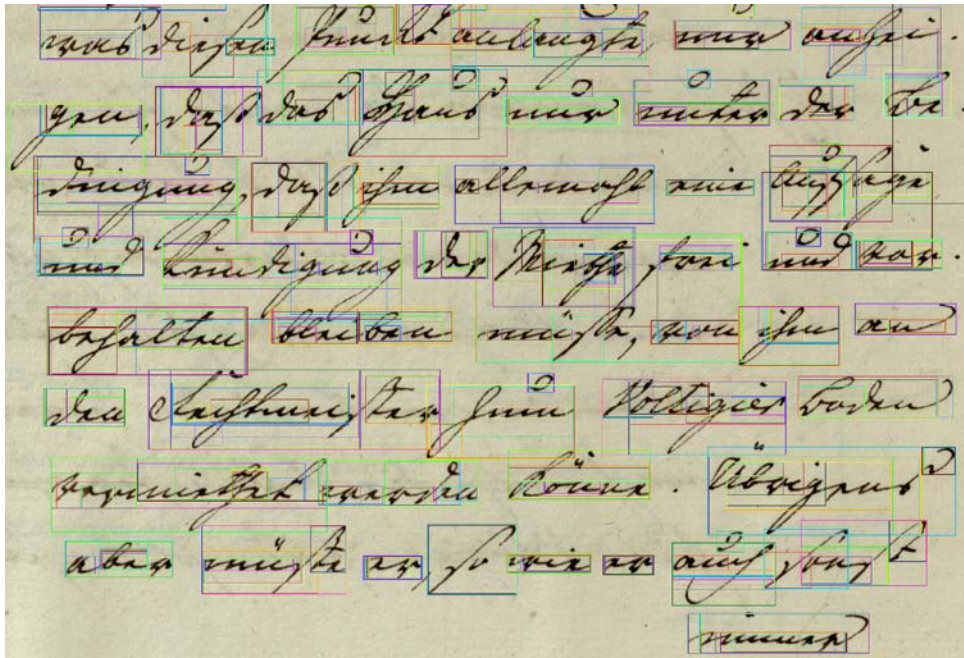 was diesen Punkt anlangte, nur anzei-
gen, daß das Haus nur unter der Be-
dingung, daß ihm allemahl eine Aufsage
und Kündigung der Miethe frei und vor-
behalten bleiben müße, von ihm an
den Fechtmeister Voltigier Boden
vermiethet werden könne. Übrigens
aber müßte er, so wie er auch sonst
immer